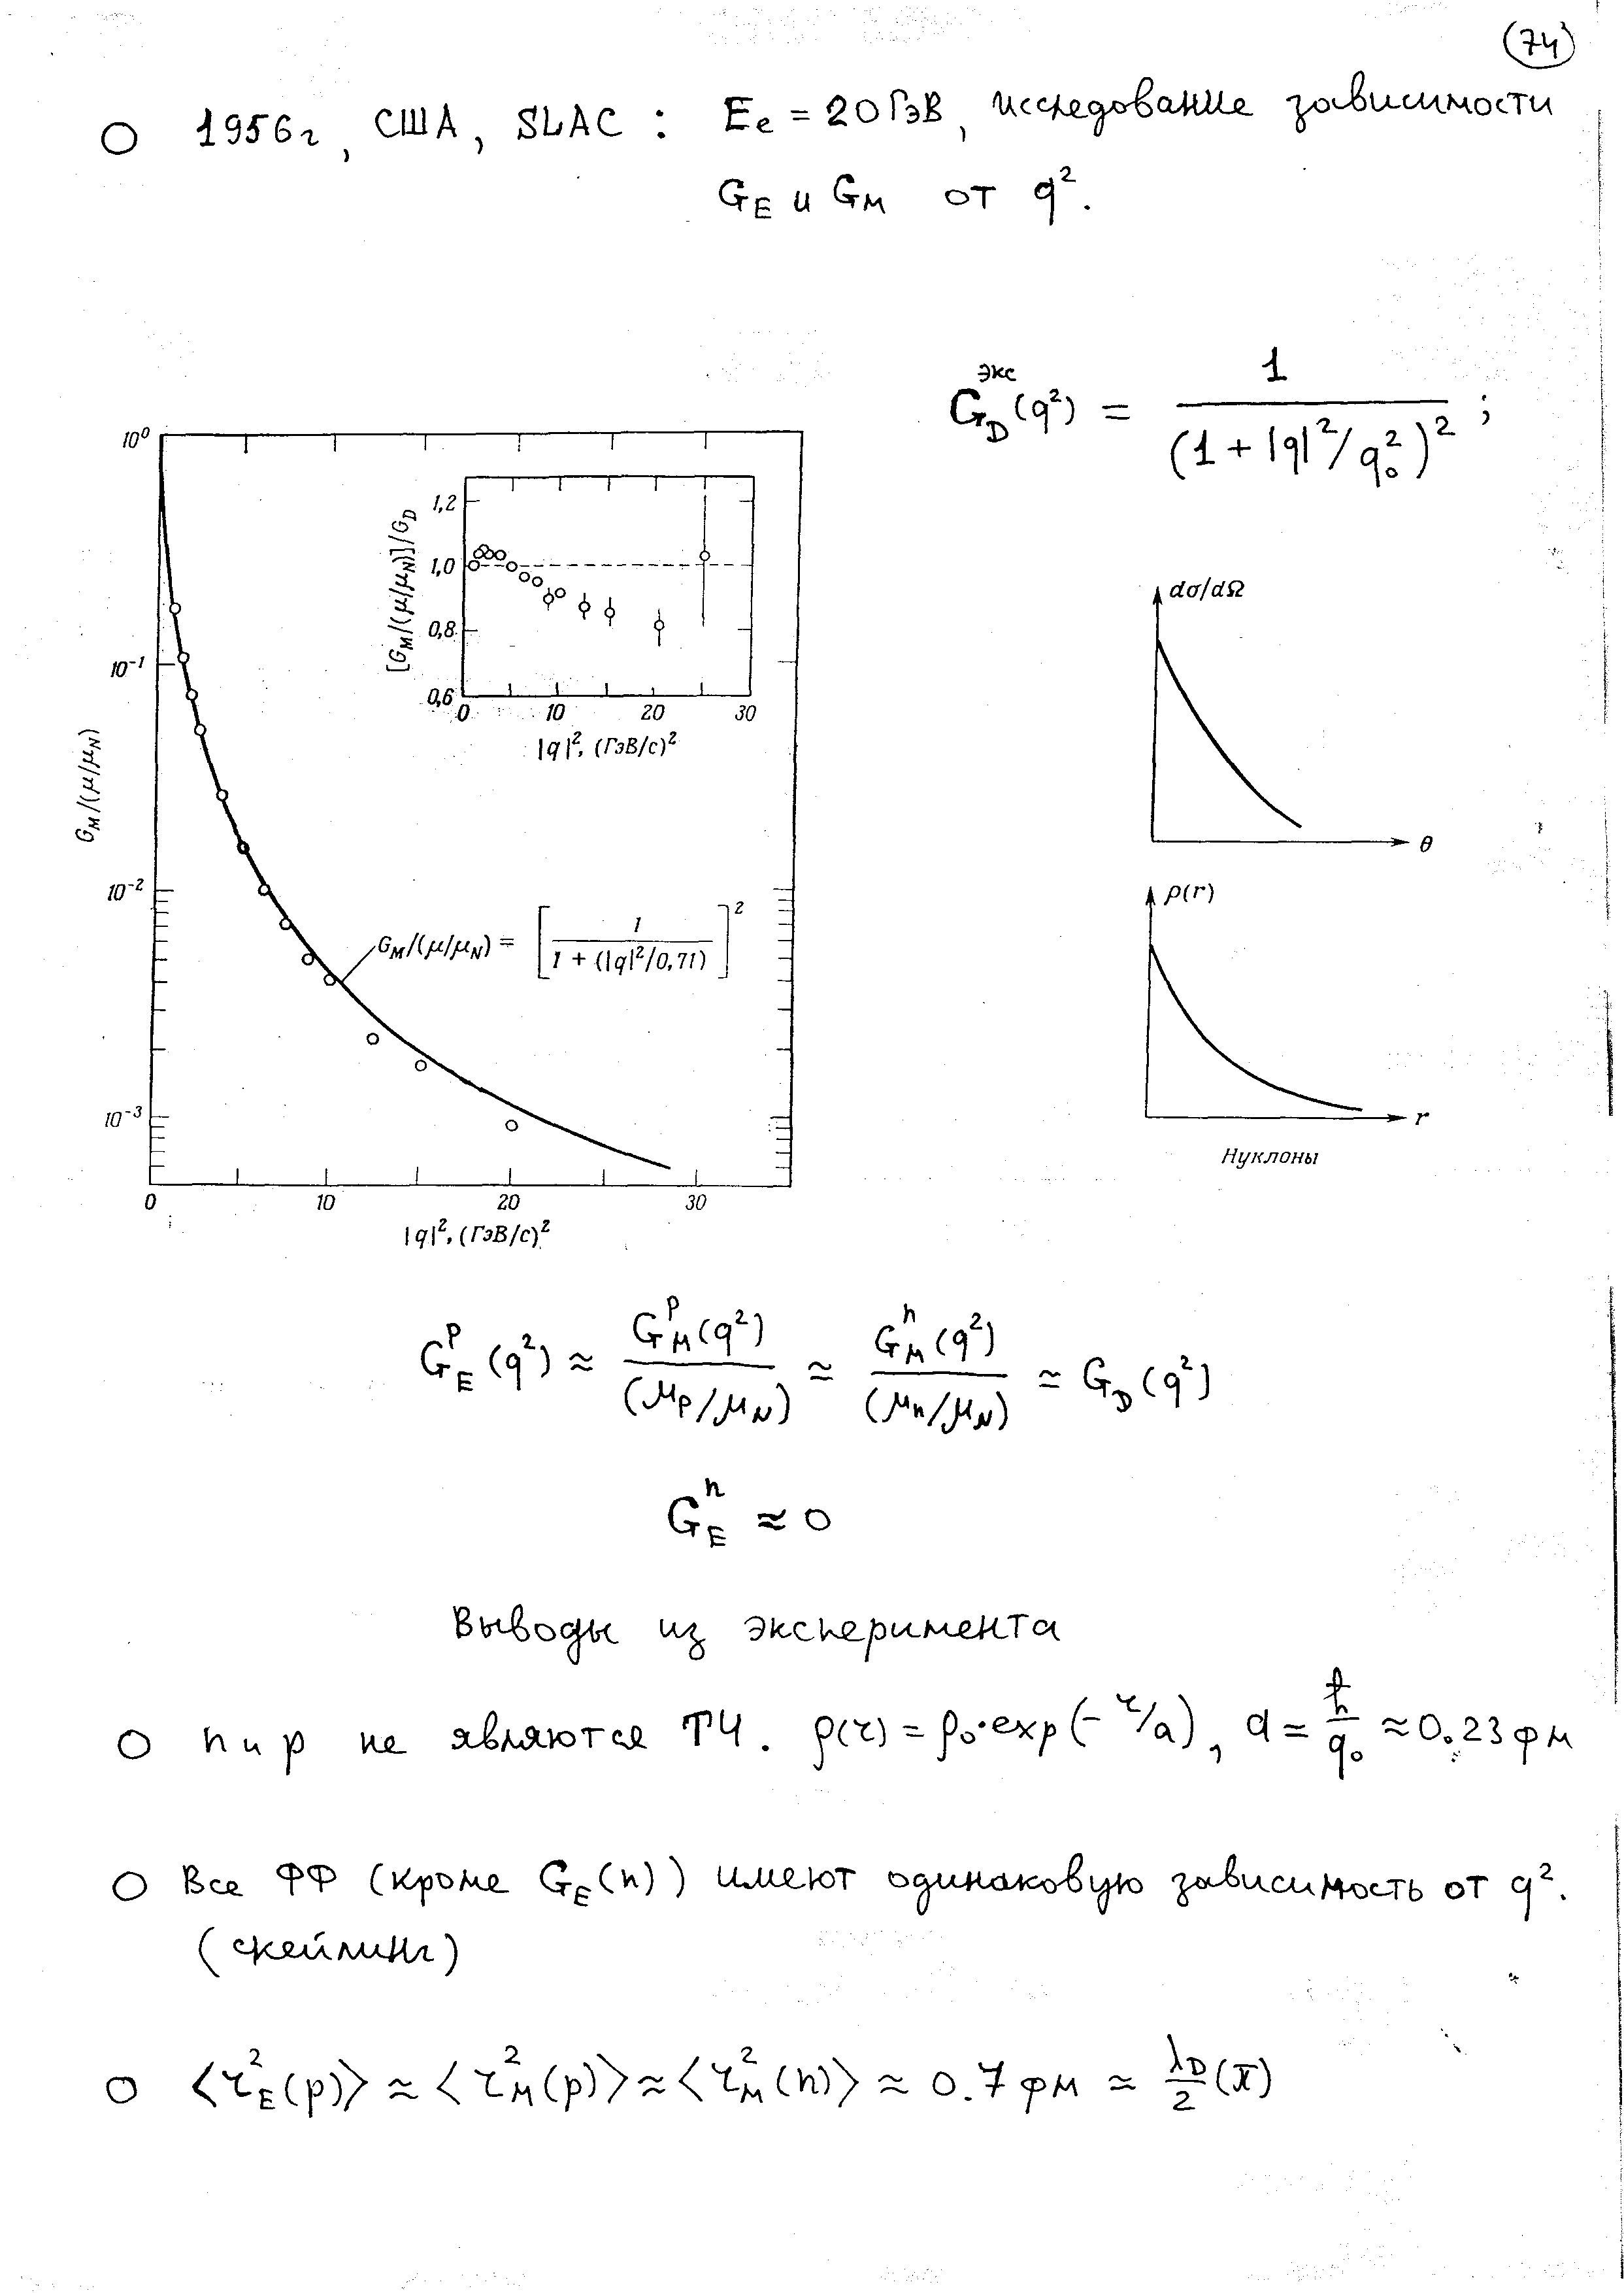 74
○ 1956г, США, SLAC : Eₑ = 20 ГэВ, исследование зависимости
G_E и G_M от q².
G_D^экс (q²) = 1 / (1 + |q|²/q₀²)² ;
10⁰
10⁻¹
10⁻²
10⁻³
G_M/(μ/μ_N)
0 10 20 30
|q|², (ГэВ/с)²
[G_M/(μ/μ_N)]/G_D
1,2
1,0
0,8
0,6
0 10 20 30
|q|², (ГэВ/с)²
G_M/(μ/μ_N) = [1 / (1 + (|q|²/0,71))]²
dσ/dΩ
θ
ρ(r)
r
Нуклоны
G_E^p (q²) ≈ G_M^p (q²) / (μ_p/μ_N) ≈ G_M^n (q²) / (μ_n/μ_N) ≃ G_D (q²)
G_E^n ≈ 0
Выводы из эксперимента
○ n и p не являются ТЧ. ρ(r) = ρ₀·exp(-r/a), a = ħ/q₀ ≈ 0.23 фм
○ Все ФФ (кроме G_E(n)) имеют одинаковую зависимость от q².
(скейлинг)
○ <r²_E(p)> ≈ <r²_M(p)> ≈ <r²_M(n)> ≈ 0.7 фм ≈ λ_D/2 (π)